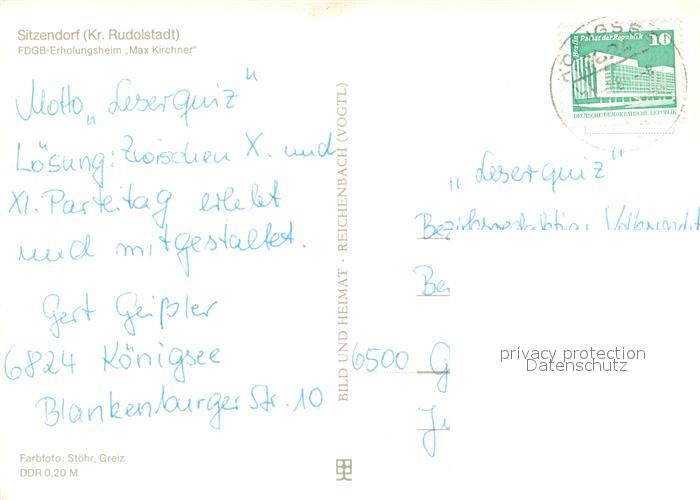 Sitzendorf (Kr. Rudolstadt)
FDGB-Erholungsheim „Max Kirchner“
Motto „Leserquiz“
Lösung: Zwischen X. und
XI. Parteitag erlebt
und mitgestaltet.
Gert Geißler
6824 Königsee
Blankenburger Str. 10
Farbfoto: Stöhr, Greiz
DDR 0,20 M
BILD UND HEIMAT · REICHENBACH (VOGTL)
Berlin Palast der Republik
10
DEUTSCHE DEMOKRATISCHE REPUBLIK
„Leserquiz“
Bezirksredaktion Volkswacht
6500 G
privacy protection
Datenschutz